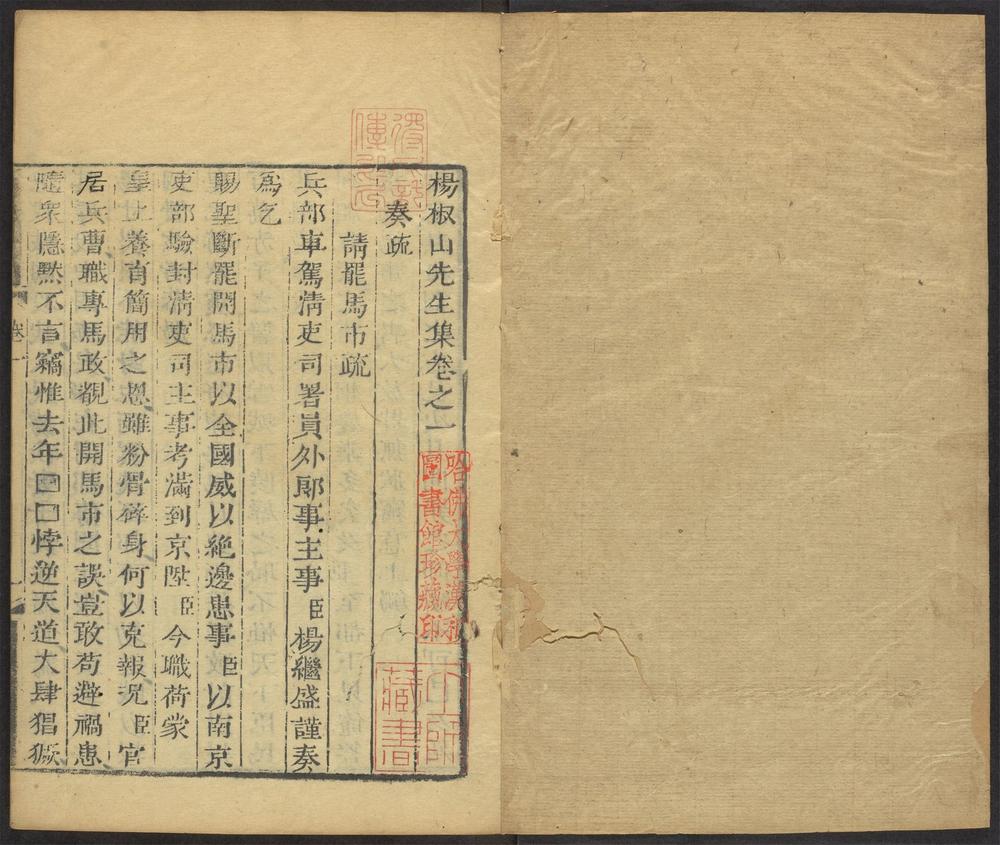 楊椒山先生集卷之一
奏疏
請罷馬市疏
兵部車駕清吏司署員外郎事主事臣楊繼盛謹奏
爲乞
賜聖斷罷開馬市以全國威以絶邊患事臣以南京
吏部驗封清吏司主事考滿到京陞臣今職荷蒙
皇上養育簡用之恩雖粉骨碎身何以克報况臣官
居兵曹職專馬政覩此開馬市之誤豈敢苟避禍患
隨衆隱默不言竊惟去年□□悖逆天道大肆猖獗
卷一
哈佛大學漢和
圖書館珍藏印
藏書